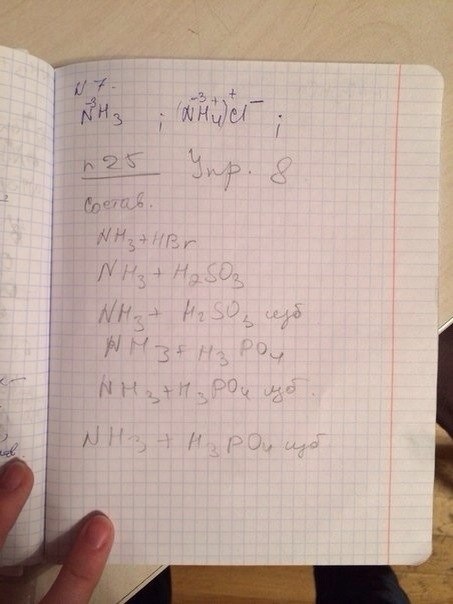 N 7.
N⁻³H₃ ; (N⁻³H₄⁺)⁺Cl⁻ ;
п 25 Упр. 8
Состав.
NH₃+HBr
NH₃ + H₂SO₃
NH₃ + H₂SO₃ изб
NH₃+H₃PO₄
NH₃+H₃PO₄ изб.
NH₃ + H₃PO₄ изб